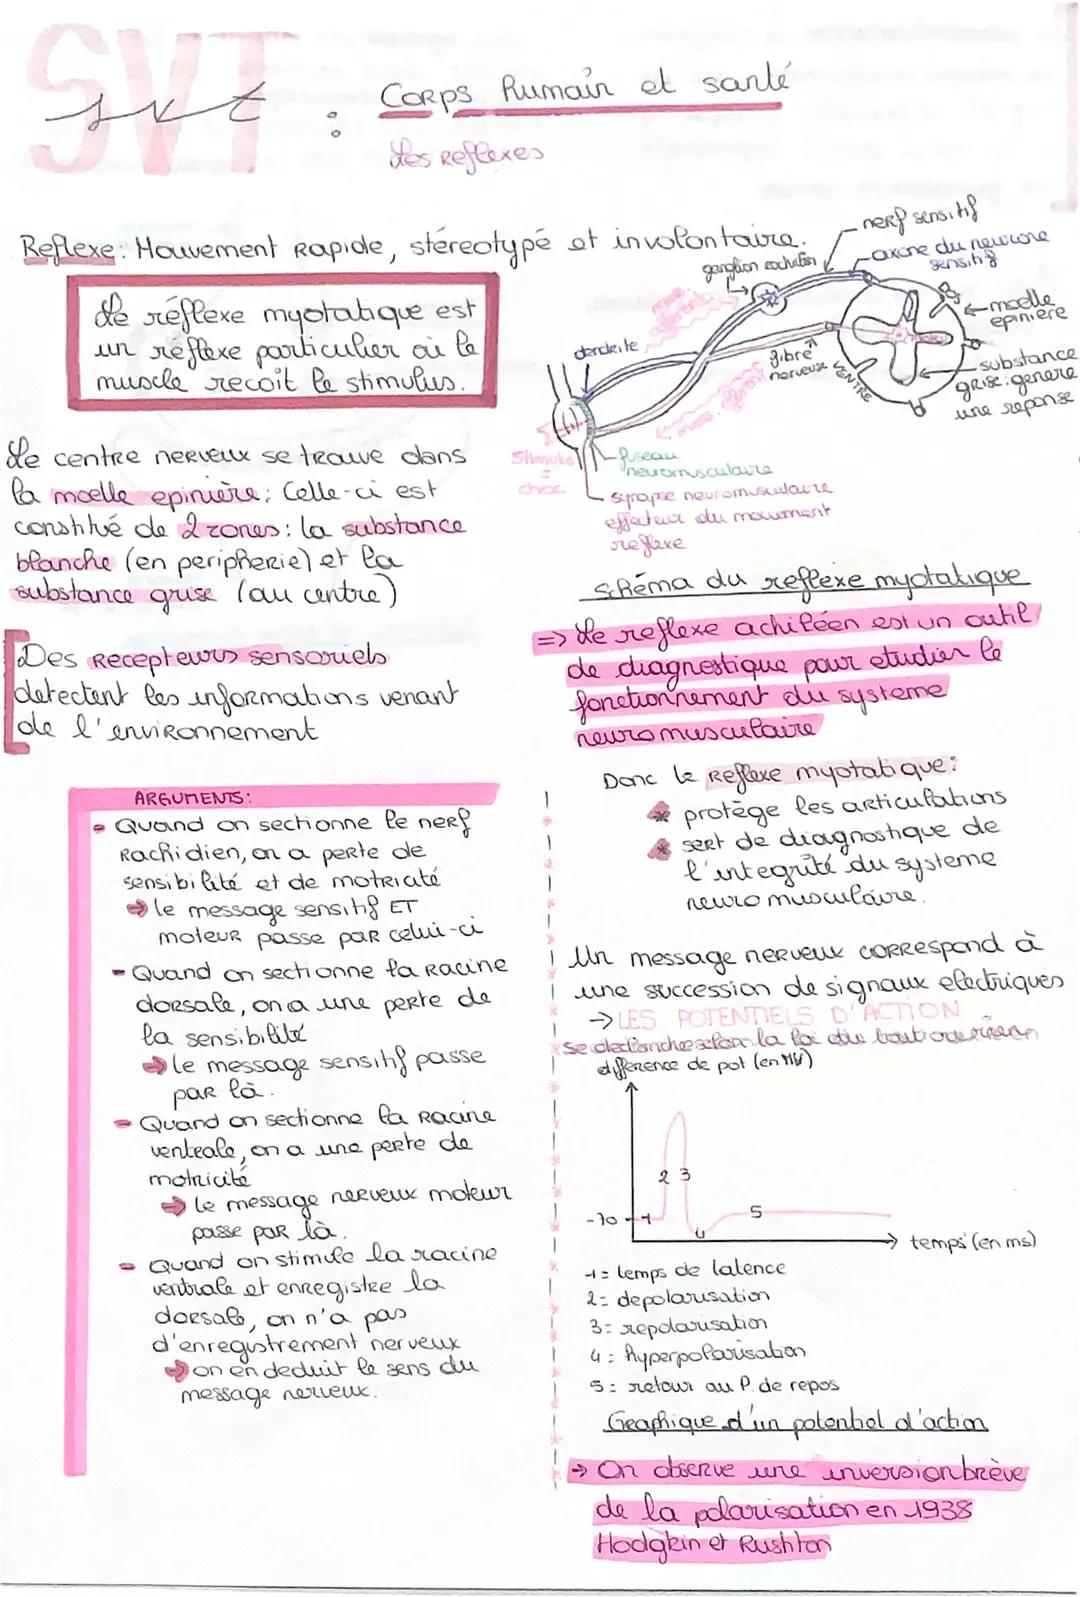 SVT
svt : Corps humain et santé
Les Reflexes
Reflexe : Mouvement Rapide, stéreotypé et involontaire.
Le réflexe myotatique est
un réflexe particulier où le
muscle recoit le stimulus.
Le centre nerveux se trouve dans
la moelle epinière ; Celle-ci est
constitué de 2 zones : la substance
blanche (en peripherie) et la
substance grise (au centre)
Des Recepteurs sensoriels
detectent les informations venant
de l'environnement
ARGUMENTS :
- Quand on sectionne le nerf
Rachidien, on a perte de
sensibilité et de motricité
→ le message sensitif ET
moteur passe par celui-ci
- Quand on sectionne la Racine
dorsale, on a une perte de
la sensibilité
→ le message sensitif passe
par là.
- Quand on sectionne la Racine
ventrale, on a une perte de
motricité
→ le message nerveux moteur
passe par là.
- Quand on stimule la racine
ventrale et enregistre la
dorsale, on n'a pas
d'enregistrement nerveux
→ on en deduit le sens du
message nerveux.
nerf sensitif
axone du neurone
sensitif
ganglion rachidien
moelle
epinière
dendrite
fibre
nerveuse
VENTRE
substance
grise : genere
une reponse
Stimulus
=
choc
fuseau
neuromusculaire
synapse neuromusculaire
effecteur du mouvement
reflexe
schéma du reflexe myotatique
=> Le reflexe achiléen est un outil
de diagnostique pour etudier le
fonctionnement du systeme
neuromusculaire
Donc le Reflexe myotatique :
* protège les articulations
* sert de diagnostique de
l'integrité du systeme
neuro musculaire.
Un message nerveux correspond à
une succession de signaux electriques
→ LES POTENTIELS D'ACTION
se declanche selon la loi du tout ou rien
difference de pot (en MV)
2 3
-70
1
4
5
temps (en ms)
1 = temps de latence
2 = depolarisation
3 = repolarisation
4 = hyperpolarisation
5 = retour au P. de repos
Graphique d'un potentiel d'action
→ On observe une inversion brève
de la polarisation en 1938
Hodgkin et Rushton